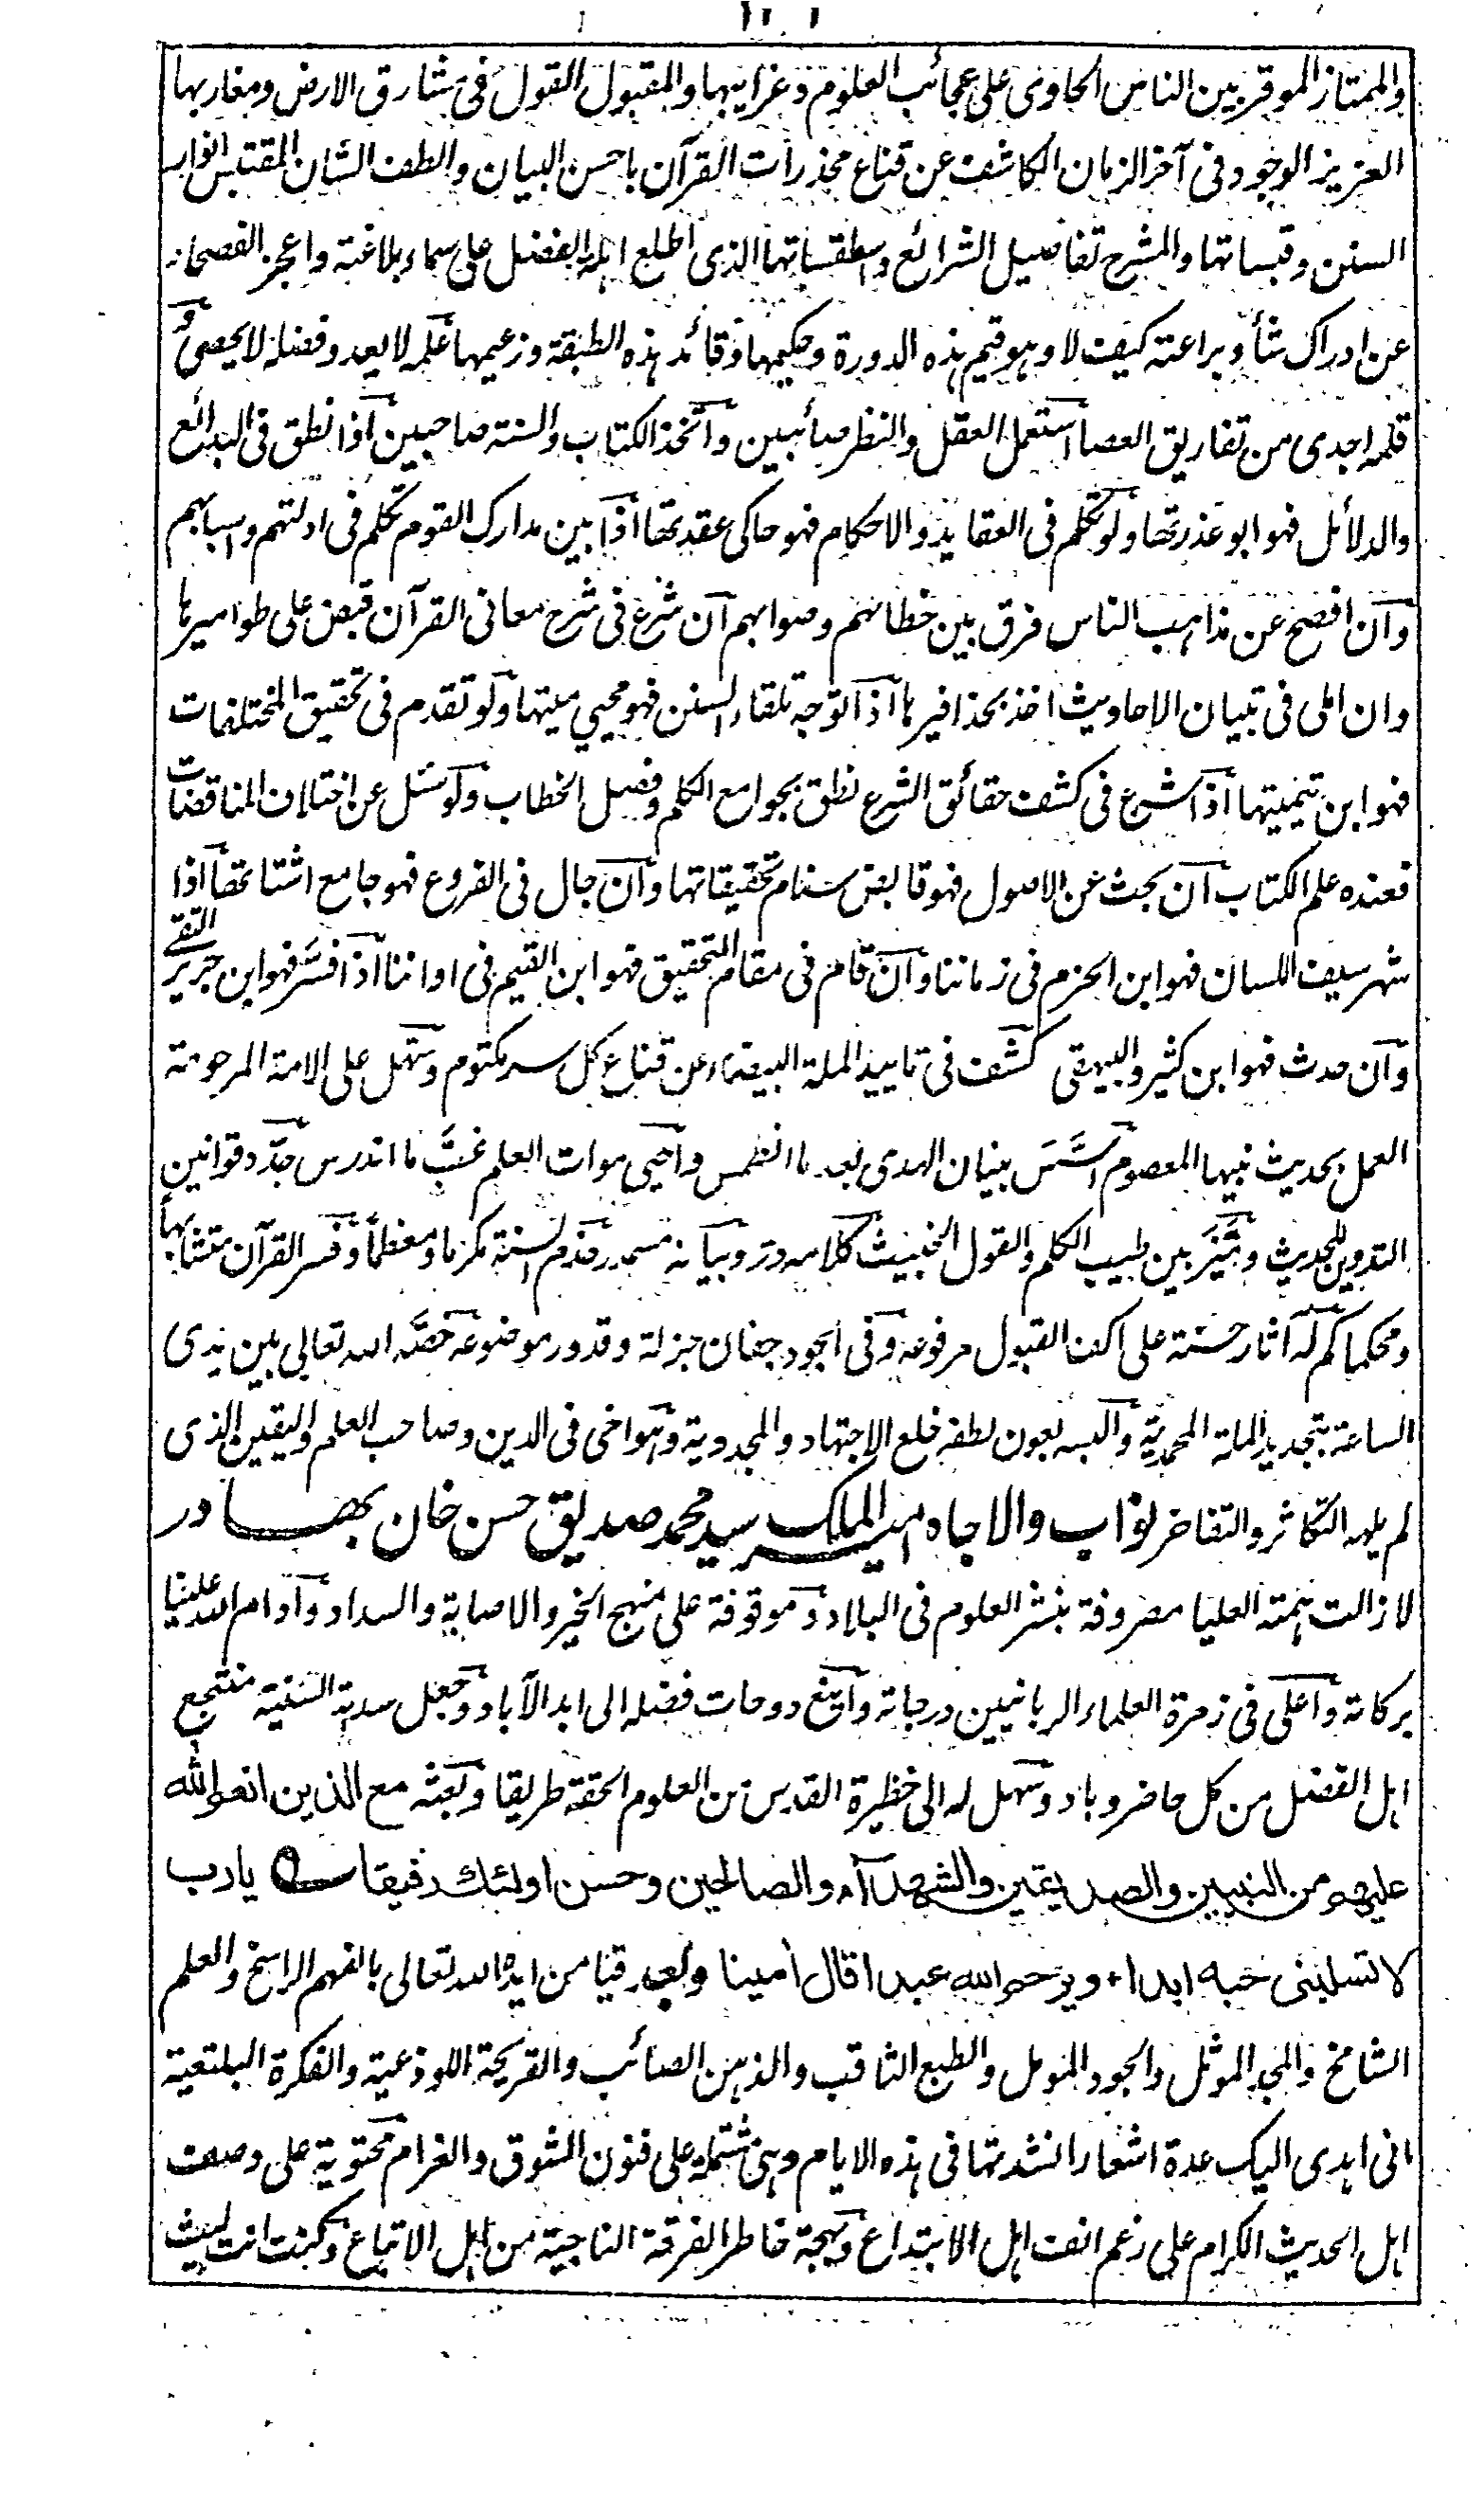 والممتاز الموقر بين الناس الحاوى على عجائب العلوم وغرايبها والمقبول القول فى مشارق الارض ومغاربها
العزيز الوجود فى آخر الزمان الكاشف عن قناع مخذرات القرآن باحسن البيان والطف الشان المقتبس انوار
السنن وقبساتها والمشرح تفاصيل الشرائع واسطقساتها الذى اطلع اهلة الفضل على سماء بلاغته واعجز الفصحاء
عن ادراك شأو براعته كيف لا وهو قيم هذه الدورة وحكيمها وقائد هذه الطبقة وزعيمها علمه لا يعد وفضله لا يحصى و
قلمه اجدى من تفاريق العصا استعمل العقل والنظر صائبين واتخذ الكتاب والسنة صاحبين اذا نطق فى البدائع
والدلائل فهو ابو عذرتها ولو تكلم فى العقايد والاحكام فهو حاكى عقدتها اذا بين مدارك القوم تكلم فى ادلتهم واسبابهم
وان افصح عن مذاهب الناس فرق بين خطائهم وصوابهم ان شرع فى شرح معانى القرآن قبض على طواميرها
وان املى فى تبيان الاحاديث اخذ بحذافيرها اذا توجه تلقاء السنن فهو محيي ميتها ولو تقدم فى تحقيق المختلفات
فهو ابن تيميتها اذا شرع فى كشف حقائق الشرع نطق بجوامع الكلم وفصل الخطاب ولو سئل عن اختلاف المناقضات
فعنده علم الكتاب ان بحث عن الاصول فهو قابض سنام تحقيقاتها وان جال فى الفروع فهو جامع اشتاتها اذا
شهر سيف اللسان فهو ابن الحزم فى زماننا وان قام فى مقام التحقيق فهو ابن القيم فى اواننا اذا فسّر فهو ابن جرير التقے
وان حدث فهو ابن كثير والبيهقى كشف فى تاييد الملة البيضاء عن قناع كل سر مكتوم وسهل على الامة المرحومة
العمل بحديث نبيها المعصوم اسَّسَ بنيان الهدى بعد ما انطمس واحيى موات العلم غبَّ ما اندرس جدّد قوانين
التدوين للحديث وميَّزَ بين طيب الكلم والقول الخبيث كلامه در وبيانه سحر خدم السنة مكرما ومعظما وفسر القرآن متشابها
ومحكما كم له آثار حسنة على اكف القبول مرفوعه وفى الجود جفان جزلة وقدور موضوعه خصَّه الله تعالى بين يدى
الساعة بتجديد الملة المحمدية والبسه بعون لطفه خلع الاجتهاد والمجدوية وهو اخى فى الدين وصاحب العلم واليقين الذى
لم يلهه التكاثر والتفاخر نواب والاجاه امير الملك سيد محمد صديق حسن خان بهادر
لا زالت همته العليا مصروفة بنشر العلوم فى البلاد وموقوفة على منهج الخير والاصابة والسداد وادام الله علينا
بركاته واعلى فى زمرة العلماء الربانيين درجاته واينع دوحات فضله الى ابد الآباد وجعل سدته السنية منتجع
اهل الفضل من كل حاضر وباد وسهل له الى حظيرة القدس من العلوم الحقة طريقا وبعثه مع الذين انعم الله
عليهم من النبيين والصديقين والشهدآء والصالحين وحسن اولئك رفيقا يارب
لا تسلبنى حبه ابداء ويرحم الله عبدا قال امينا وبعد فيا من ايده الله تعالى بالفهم الراسخ والعلم
الشامخ والمجد الموثل والجود المومل والطبع الثاقب والذهن الصائب والقريحة اللوذعية والفكرة البلتعية
انى اهدى اليك عدة اشعار انشدتها فى هذه الايام وهى مشتملة على فنون الشوق والغرام محتوية على وصف
اهل الحديث الكرام على زعم انف اهل الابتداع وبهجة خاطر الفرقة الناجية من اهل الاتباع وكنت انت ليث